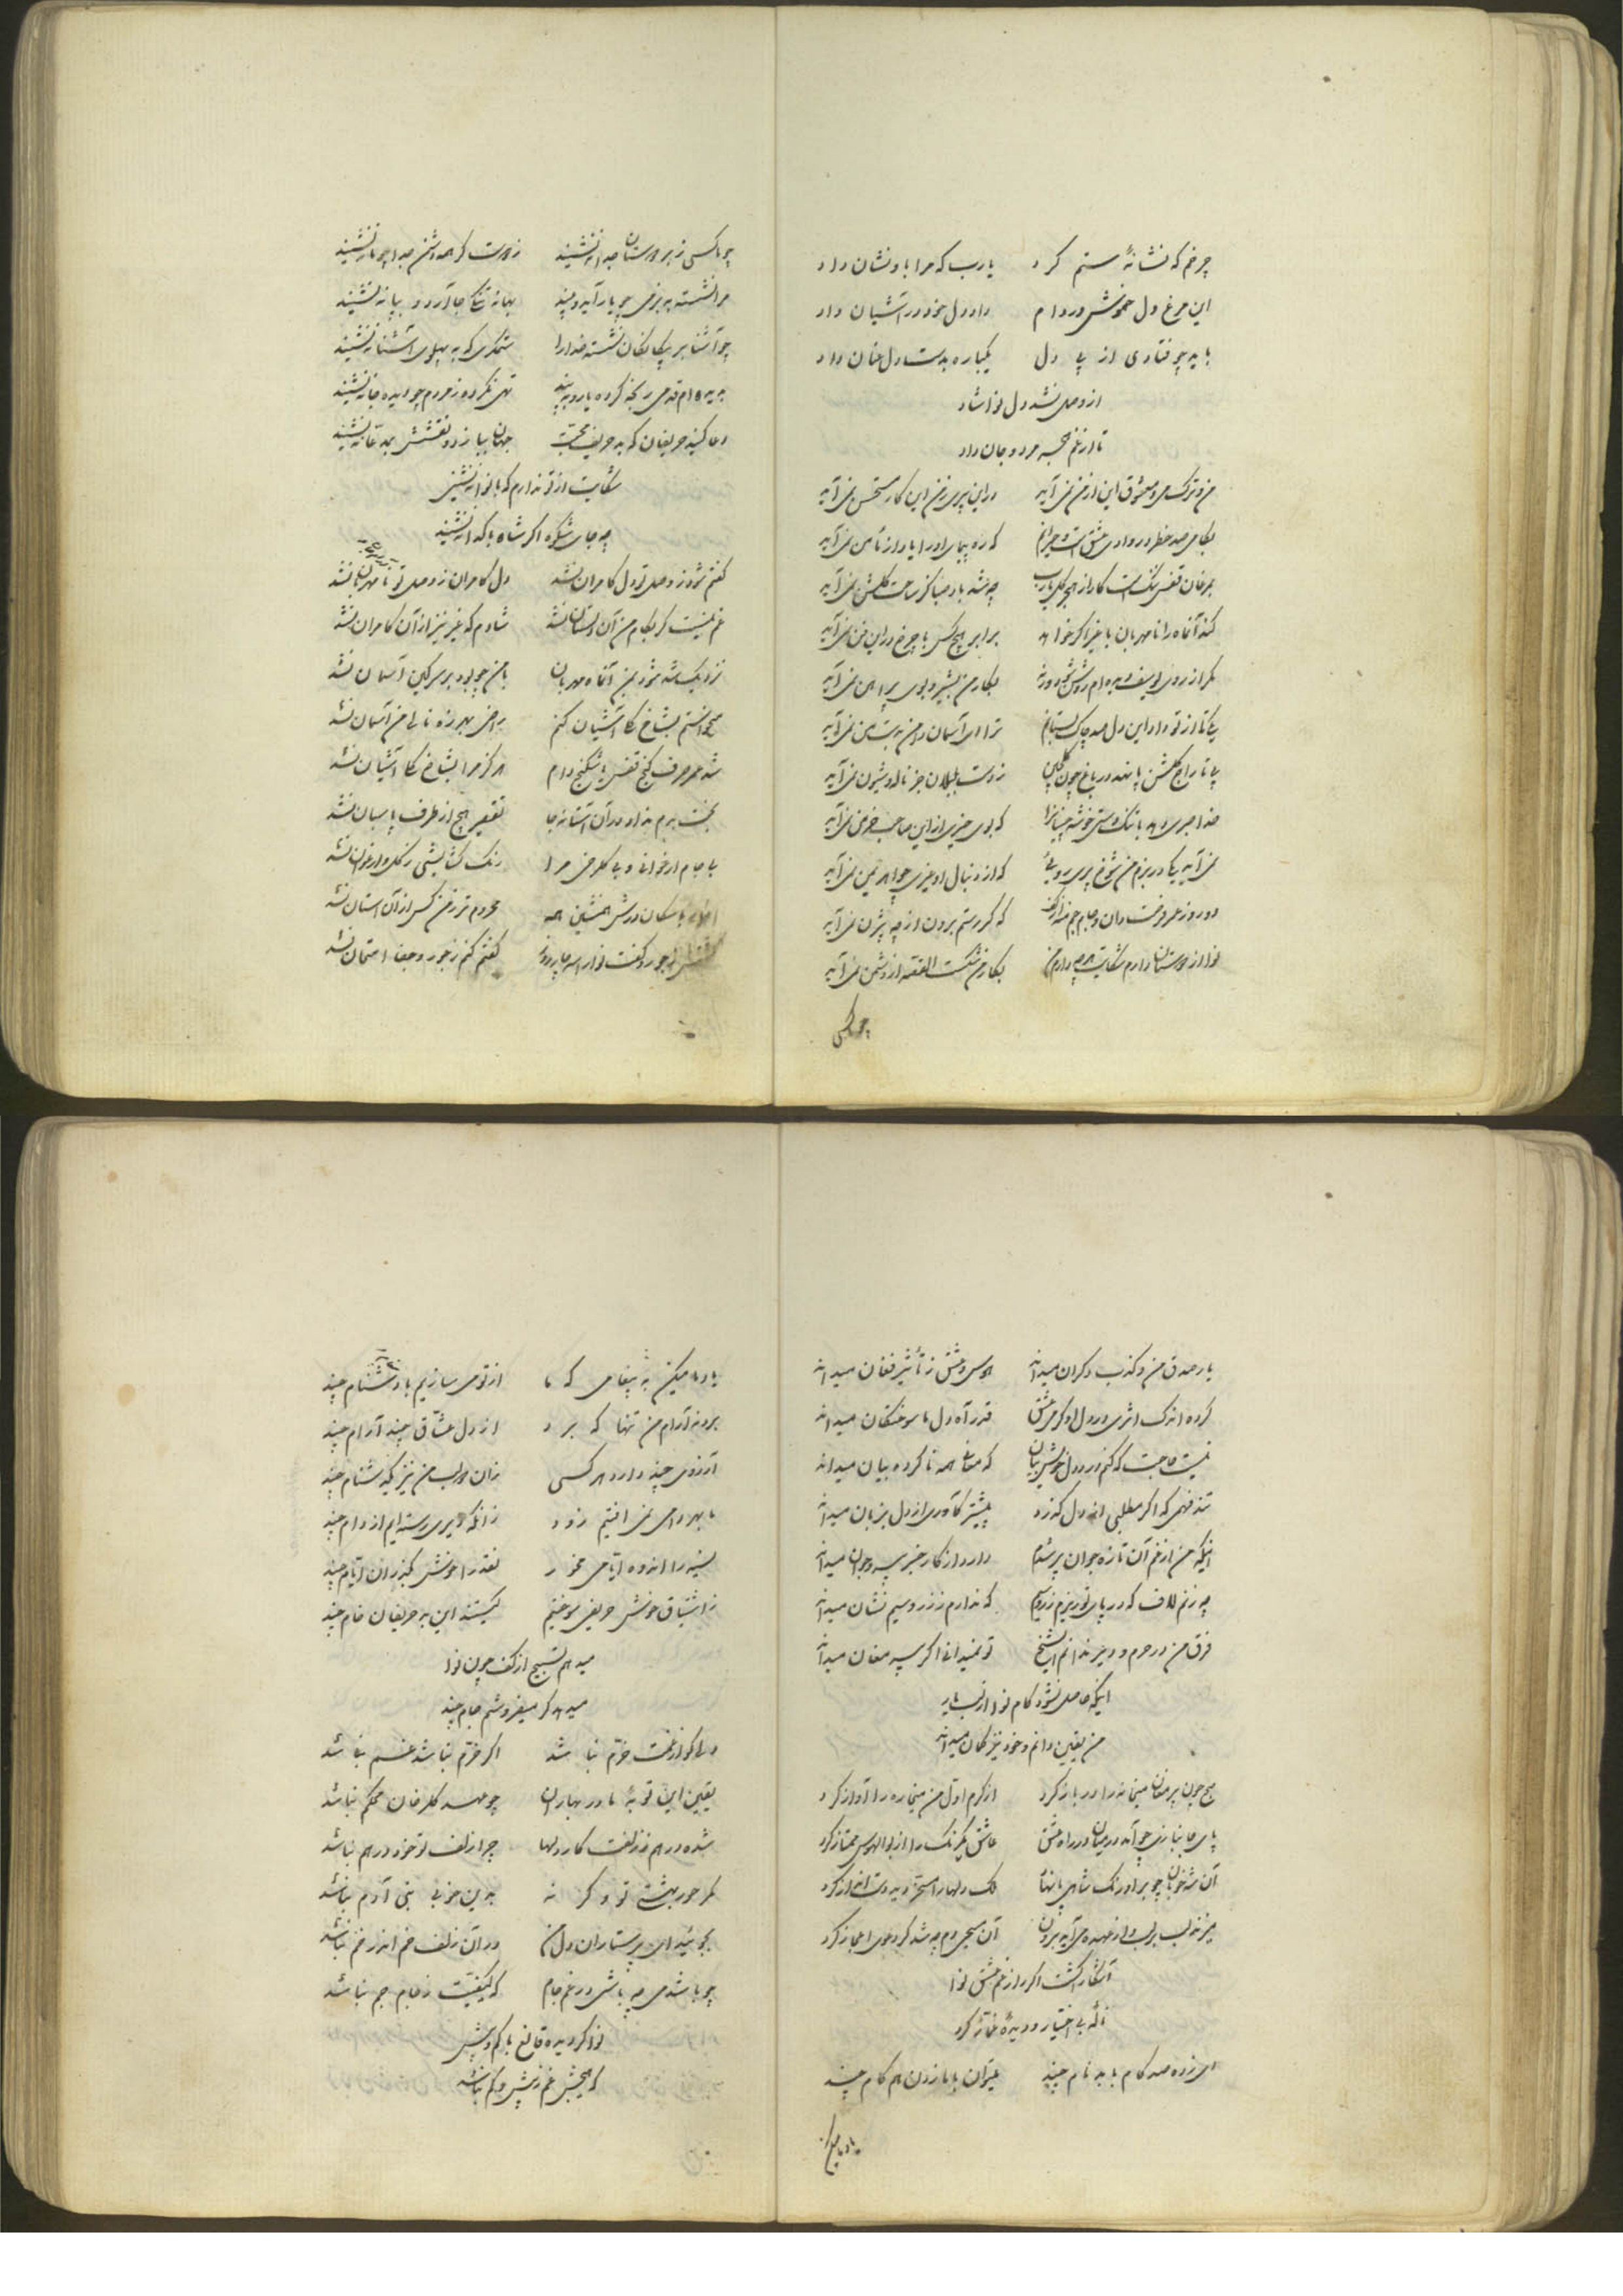 چرخم که نشانهٔ ستم کرد یارب که مرا باو نشان داد
این مرغ دل خموش در دام داد دل خود در آشیان داد
باید چو فتادی از پی دل یکباره بدست دل عنان داد
از وصل نشد دل نوا شاد
تا از غم هجر مرد و جان داد
من و ترک می و معشوق این از من نمی آید در این پیری ز من این کار مستحسن نمی آید
بگامی صد خطر در وادی عشق است و حیرانم که ره پیمای او را یاد از مأمن نمی آید
بمرغان قفس تنگ است کار از هجر گل یارب چه شد باد صبا کز ساحت گلشن نمی آید
کند آنماه را نامهربان با غیر اگر خواهد برابر هیچکس با چرخ در این فن نمی آید
مگر از روی یوسف دیده ام روشن شود ورنه بکار من بشیر و بوی پیراهن نمی آید
یکی تا از تو داد این دل صد چاک بستانم ترا ای آسمان دامن بدست من نمی آید
پی تاراج گلشن پا نهد در باغ چون گلچین ز دست بلبلان جز ناله و شیون نمی آید
خدا صبری دهد با تنگدستی خوشه چینانرا که بوی خیری از این صاحب خرمن نمی آید
نمی آید یکی در بزم من شوخ پری رویی که از دنبال او غیری چو اهریمن نمی آید
دو روز عمر فرصت دان و جام جم منه از کف که گر رستم برون از چه بیژن نمی آید
نوا از دوستان دارم شکایت هر چه دارم من بکار من شکست القصه از دشمن نمی آید
چو با کسی
چو با کسی ز بر دوستان جدا ننشیند ز دوست گر همه دشمن جدا چو ما ننشیند
مرا نشسته به بزمی چو یار آید و بیند بهانه تنگی جا آرد و بیا ننشیند
چو آشنا بر بیگانگان نشسته خدا را ستمگری که به پهلوی آشنا ننشیند
بدیده ام قدمی رنجه کرده یار و ببیند تهی نکرده ز مردم چو دیده جا ننشیند
دعا کنید حریفان که بد حریف محبت جهان ببازد و نقشش بمدعا ننشیند
شکایت از تو ندارم که با نوا ننشینی
چه جای شکوه اگر شاه با گدا ننشیند
گفتم شود ز وصل تو دل کامران نشد دل کامران ز وصل تو نامهربان نشد
غم نیست گر بکام من آن دلستان نشد شادم که غیر نیز از آن کامران نشد
نزدیک شد شود بمن آنماه مهربان با من چو بود بر سر کین آسمان نشد
میخواستم بشاخ گلی آشیان کنم راضی بهرزه نالی من آسمان نشد
شد عمر صرف کنج قفس یا شکنج دام هرگز مرا بشاخ گلی آشیان نشد
بختم برم نداد در آن آستانه جا تقصیر هیچ از طرف پاسبان نشد
با جام ارغوانی و بی گلرخی مرا رنگ گشایشی ز گل و ارغوان نشد
با سگان درش همنشین همه محروم تر ز من کس از آن آستان نشد
ز جور و گفت نوا را سه چار روز گفتم کنم ز جور و جفا امتحان نشد
یار صدق من و کذب دگران میداند هوس و عشق ز تأثیر فغان میداند
کرده اندک اثری در دل او گرمی عشق قدر آه دل ما سوختگان میداند
نیست حاجت که کنم درد دل خویش بیان که مغان همه ناکرده بیان میداند
تند فهمی که اگر مطلبی از دل گذرد پیشتر کآوری از دل بزبان میداند
اینکه من از غم آن تازه جوان پیر شدم دارد از کار خبر پیر و جوان میداند
چه زنم لاف که در پای تو ریزم زر و سیم که ندارم ز زر و سیم نشان میداند
فرق من در حرم و دیر ندانم ای شیخ تو نمیدانی اگر پیر مغان میداند
اینکه حاصل نشود کام نوا از لب یار
من یقین دانم و خود نیز گمان میداند
صبح چون پیر مغان میخانه را در باز کرد از کرم اول من میخاره را آواز کرد
پای جانبازی چو آمد در میان در راه عشق عاشق یکرنگ را از بوالهوس ممتاز کرد
آن شه خوبان چو بر اورنگ شاهی پا نهاد ملک دلها را مسخر دید و دست انداز کرد
میزند لب بر لب و از عهده می آید برون آن مسیحی دم چه شد گر دعوی اعجاز کرد
آشکار گشت اگر راز غم عشق نوا
نالهٔ بی اختیار و دیدهٔ غماز کرد
می زده صد کام باید نام چند میتوان با ما زدن هم گام چند
یاد ما میکن
یاد ما میکن به پیغامی که ما از تو می سازیم با دشنام چند
برد نه آرام من تنها که برد از دل عشاق چند آرام چند
آرزوی چند دارد هر کسی زان دو لب من نیز یک دشنام چند
ما بهر دامی نمی افتیم زود زانکه بیری رسته ایم از دام چند
نسیه را اندوه ایامی مخور نقد را خوش بگذران ایام چند
ز اشتیاق خویش حریفی سوختیم کیستند این بد حریفان خام چند
میدهم تسبیح از کف چون نوا
میدهد گر میفروشم جام چند
دلی کو از غمت خرم نباشد اگر خرم نباشد غم نباشد
یقین این توبهٔ ما در بهاران چو عهد گلرخان محکم نباشد
شده درهم ز زلفت کار دلها چرا زلف تو خود درهم نباشد
مگر حور بهشتی تو و گر نه بدین خوبی بنی آدم نباشد
بجوئید ای پرستاران دل من در آن زلف خم اندر خم نباشد
چو باشد می چه باشی در غم جام که کیفیت ز جام جم نباشد
نوا گردیده قانع با کم و بیش
که هیچش غم ز بیش و کم نباشد